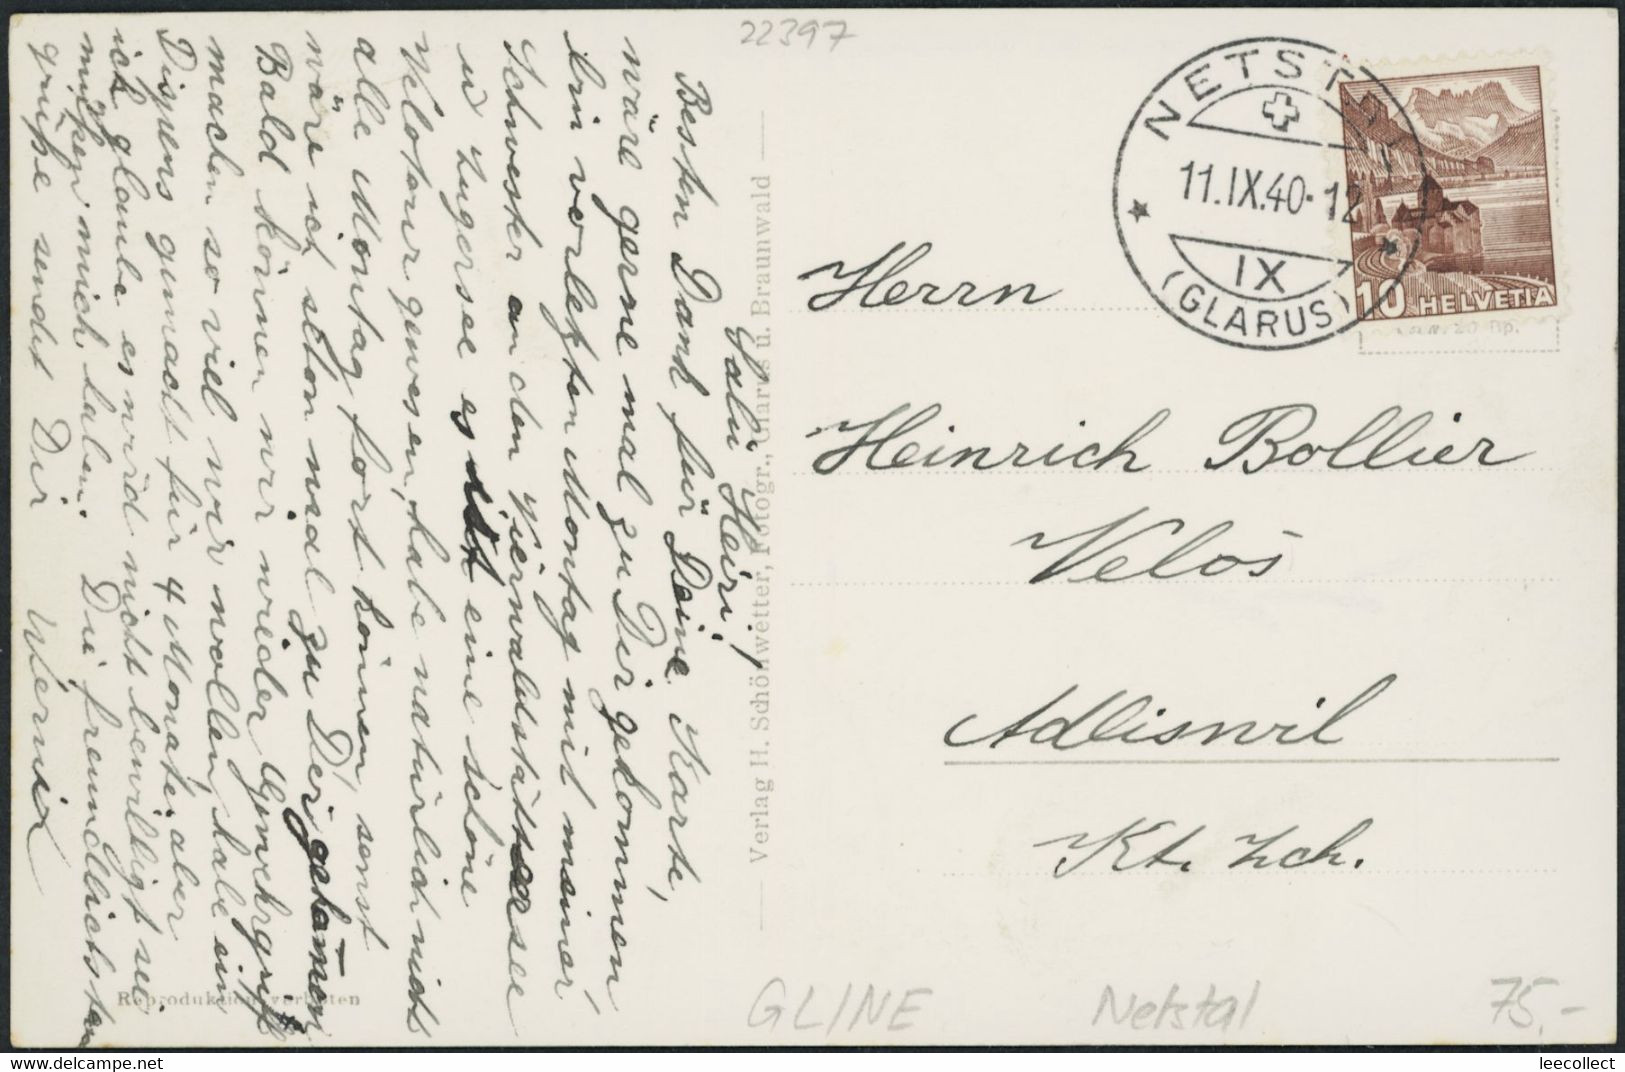 22397
NETSTAL
11.IX.40-12
IX
(GLARUS)
10 HELVETIA
Herrn
Heinrich Bollier
Velos
Adliswil
Kt. Zch.
Verlag H. Schönwetter, Fotogr., Glarus u. Braunwald
Reproduktion verboten
Salü Heiri!
Besten Dank für Deine Karte,
wäre gerne mal zu Dir gekommen
bin vorletzten Montag mit meiner
Schwester an den Vierwaldstättersee
u Zugersee es ist eine schöne
Velotour gewesen, habe natürlich nicht
alle Montag fort können, sonst
wäre ich schon mal zu Dir gekommen
Bald können wir wieder
machen so viel wir wollen, habe ein
Dispens gemacht für 4 Monate, aber
ich glaube es wird nicht bewilligt sie
mich haben. Die freundlichsten
grüsse sendet Dir Werner
GLINE
Netstal
75.-
leecollect